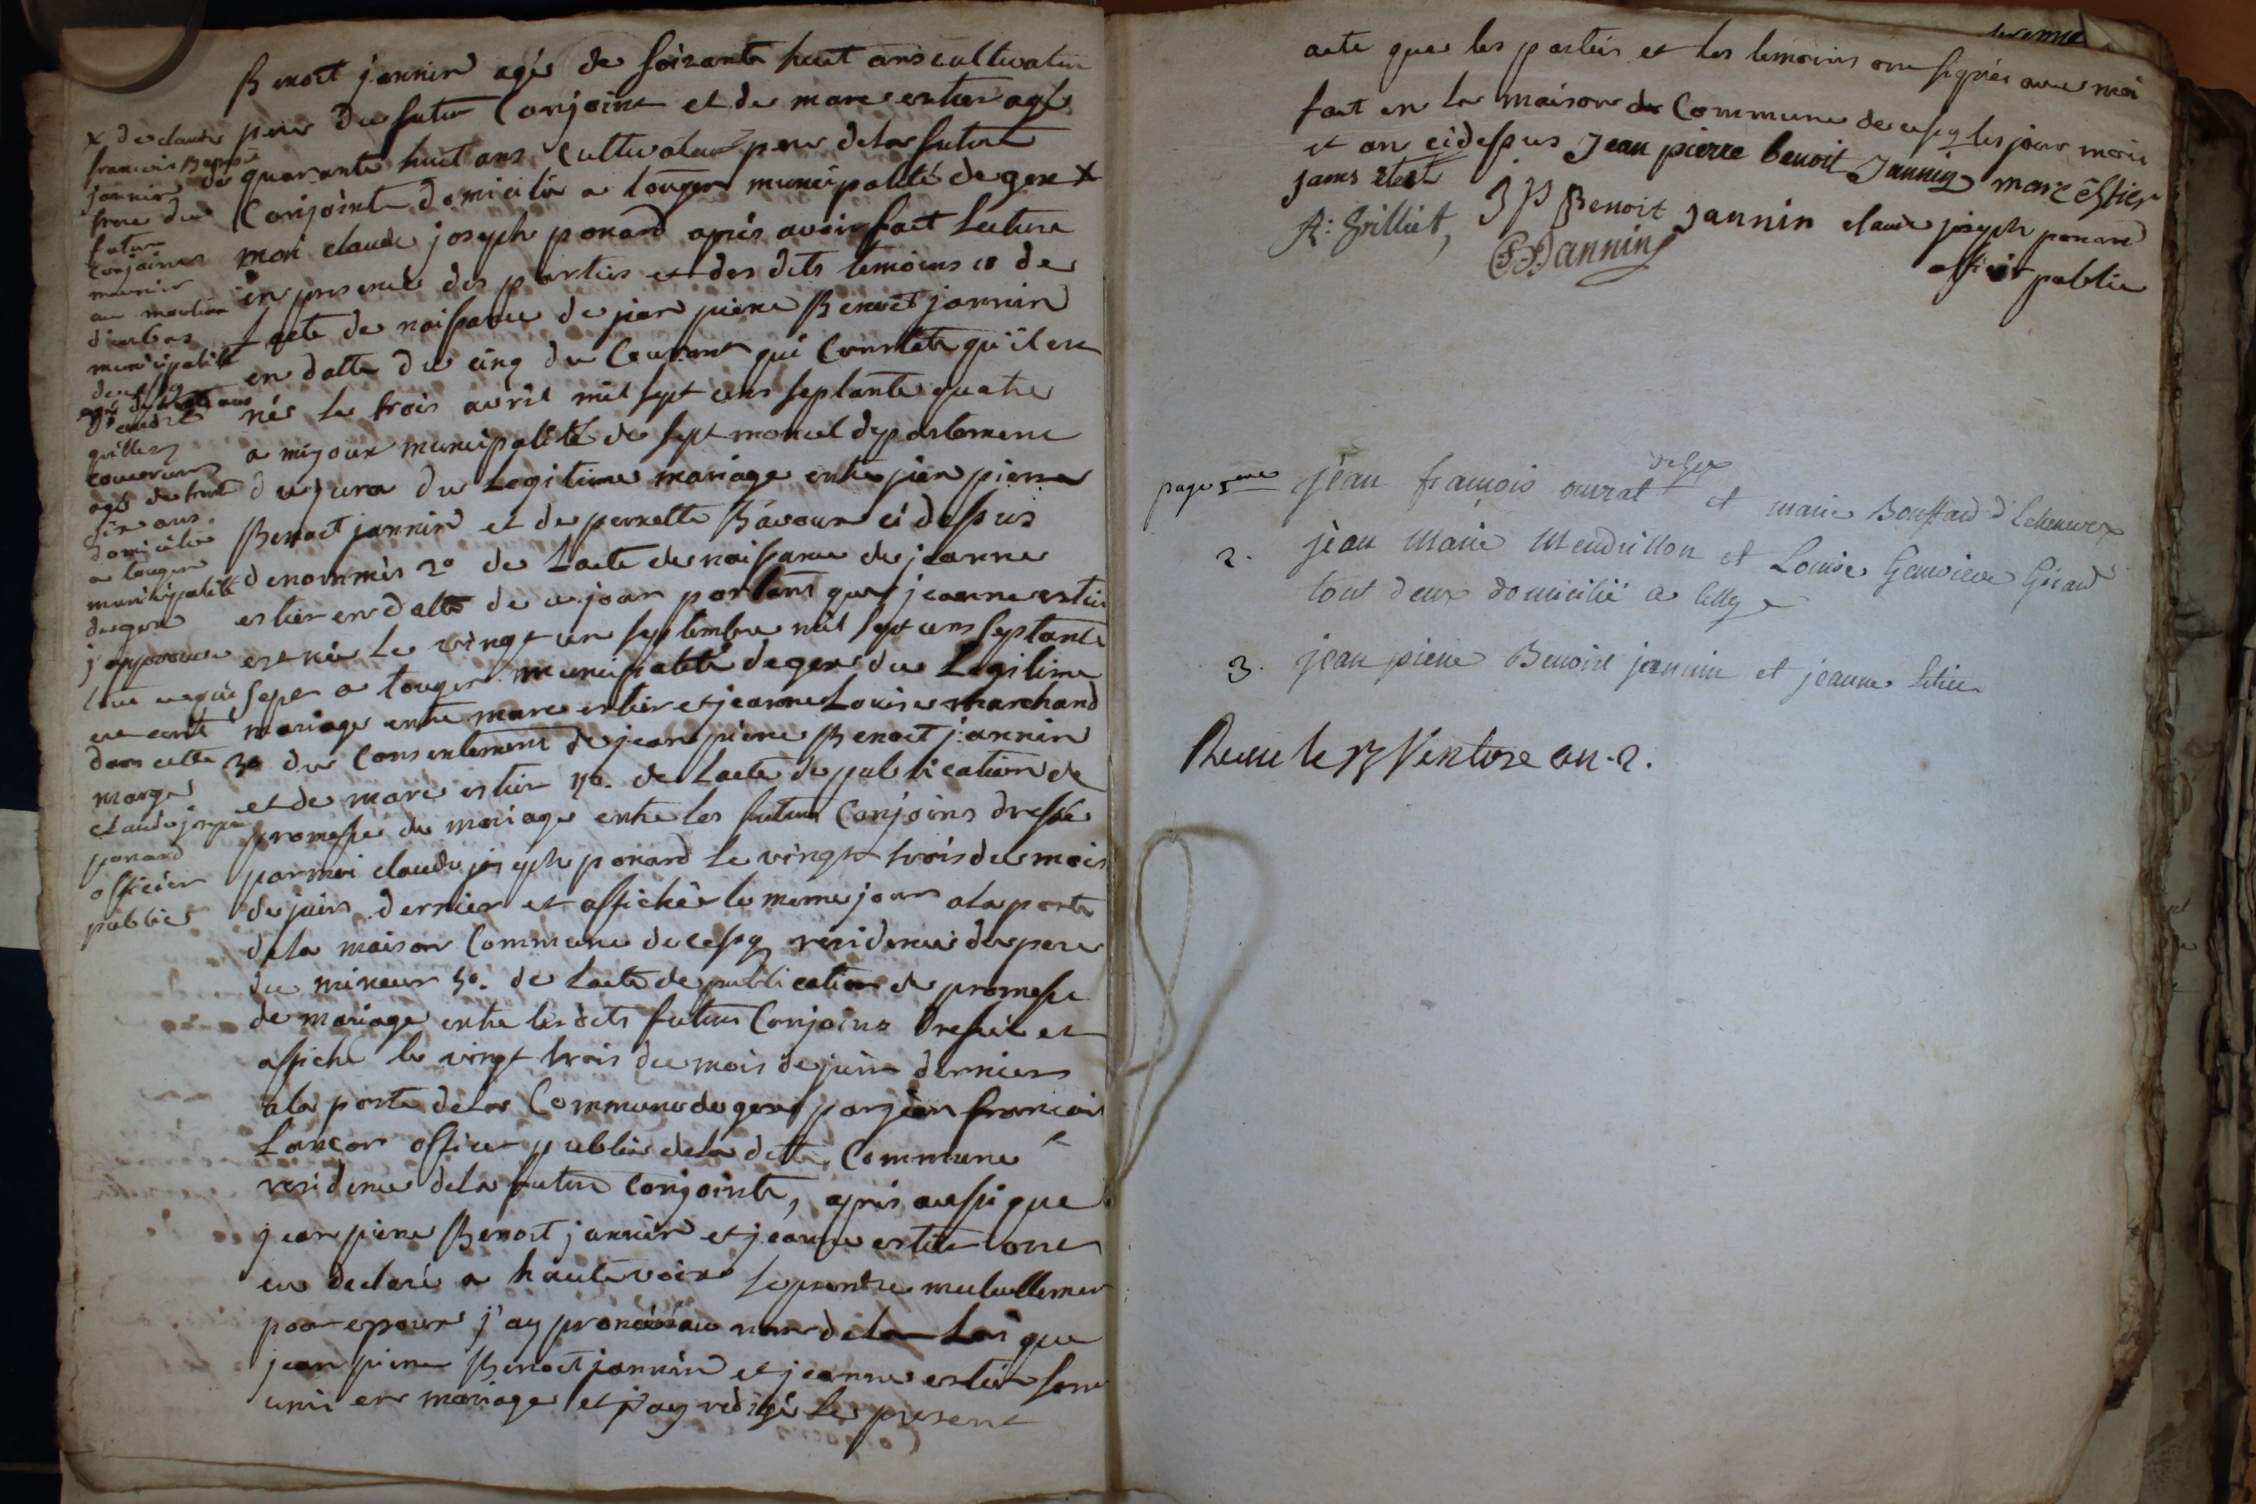 Benoit jannin agé de soixante huit ans cultivateur
pere du futur Conjoint et de marc estier agé
de quarante huit ans cultivateur pere de la future
Conjointe domicilié a tougin municipalité de gex X
moi claude joseph ponard après avoir fait lecture
en presence des parties et des dits temoins 1o de
Lacte de naissance de jean pierre Benoit jannin
en datte du cinq du Courant qui Constate qu'il est
né le trois avril mil sept cens septante quatre
a mijoux municipalité de septmoncel departement
du jura du Legitime mariage entre jean pierre
Benoit jannin et de pernette Bavoux ci dessus
denommés 2o de Lacte de naissance de jeanne
estier en datte de ce jour portant que jeanne estier
est née le vingt un septembre mil sept cens septante
sept a tougin municipalité de gex du Legitime
mariage entre marc estier et jeanne Louise marchand
3o du Consentement de jean pierre Benoit jannin
et de marc estier 4o. de Lacte de publication de
promesse de mariage entre les futurs Conjoins dressé
par moi claude joseph ponard le vingt trois du mois
de juin dernier et affiché le meme jour a la porte
de la maison Commune de cessy residence du pere
du mineur 5o. de Lacte de publication de promesse
de mariage entre les dits futurs Conjoins Dressé et
affiché le vingt trois du mois de juin dernier
a la porte de la Commune de gex par jean francois
Lancon officier public de la ditte Commune
residence de la future Conjointe, après aussi que
jean pierre Benoit jannin et jeanne estier ont
eu declaré a haute voix se prendre mutuellement
pour epoux j'ay prononcé au nom de la Loi que
jean pierre Benoit jannin et jeanne estier sont
unis en mariage et j'ay redigé le present
X de claude
francois Benoit
jannin
frere du
futur
conjoint
meunier
au moulin
d'enbas
municipalité
de cessy
agé de trente ans
D'andré
grillet
agé de trente
six ans
domicilié
a tougin
municipalité
de gex
j'approuve
tout ce qui
est ecrit
dans cette
marge
claude joseph
ponard
officier
public
acte que les parties et les temoins ont signés avec moi
fait en la maison de Commune de cessy les jour mois
et an cidessus Jean pierre benoit Jannin marc estier
A: Grilliet, J P Benoit Jannin claude joseph ponard
officier public
page 1ere jean francois ouvrat de gex et marie Bouffard d'Echenevex
2. jean Marie Mendrillon et Louise Genevieve Girard
tout deux domicilié a cessy
3. jean pierre Benoit jannin et jeanne Estier
Remi le 13 Ventose an. 2.